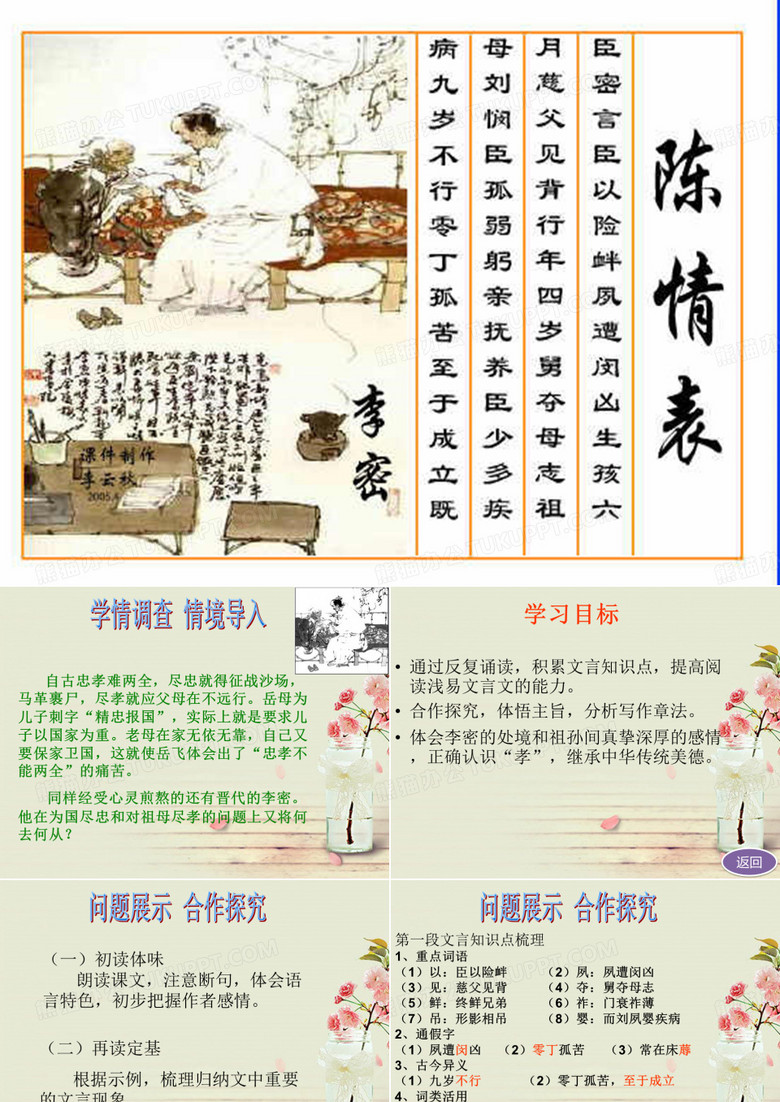 陈情表
臣密言臣以险衅夙遭闵凶生孩六
月慈父见背行年四岁舅夺母志祖
母刘悯臣孤弱躬亲抚养臣少多疾
病九岁不行零丁孤苦至于成立既
李密
课件制作
李云秋
学情调查 情境导入
自古忠孝难两全，尽忠就得征战沙场，
马革裹尸，尽孝就应父母在不远行。岳母为
儿子刺字“精忠报国”，实际上就是要求儿
子以国家为重。老母在家无依无靠，自己又
要保家卫国，这就使岳飞体会出了“忠孝不
能两全”的痛苦。
同样经受心灵煎熬的还有晋代的李密。
他在为国尽忠和对祖母尽孝的问题上又将何
去何从？
学习目标
• 通过反复诵读，积累文言知识点，提高阅
读浅易文言文的能力。
• 合作探究，体悟主旨，分析写作章法。
• 体会李密的处境和祖孙间真挚深厚的感情
，正确认识“孝”，继承中华传统美德。
返回
问题展示 合作探究
（一）初读体味
朗读课文，注意断句，体会语
言特色，初步把握作者感情。
（二）再读定基
根据示例，梳理归纳文中重要
的文言现象
问题展示 合作探究
第一段文言知识点梳理
1、重点词语
（1）以：臣以险衅 （2）夙：夙遭闵凶
（3）见：慈父见背 （4）夺：舅夺母志
（5）鲜：终鲜兄弟 （6）祚：门衰祚薄
（7）吊：形影相吊 （8）婴：而刘夙婴疾病
2、通假字
（1）夙遭闵凶 （2）零丁孤苦 （3）常在床蓐
3、古今异义
（1）九岁不行 （2）零丁孤苦，至于成立
4、词类活用